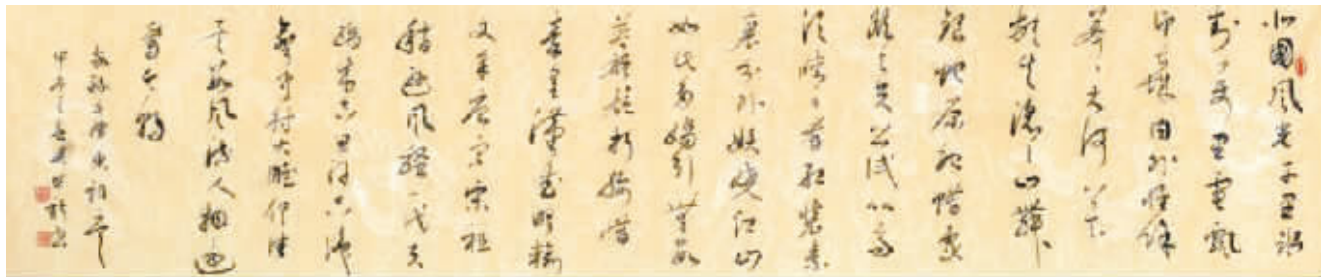 北國風光千里冰
封萬里雪飄
望長城內外惟餘
莽莽大河上下
頓失滔滔山舞
銀蛇原馳蠟象
欲與天公試比高
須晴日看紅裝素
裹分外妖嬈江山
如此多嬌引無數
英雄競折腰惜
秦皇漢武略輸
文采唐宗宋祖
稍遜風騷一代天
驕成吉思汗只識
彎弓射大雕俱往
矣數風流人物還
看今朝